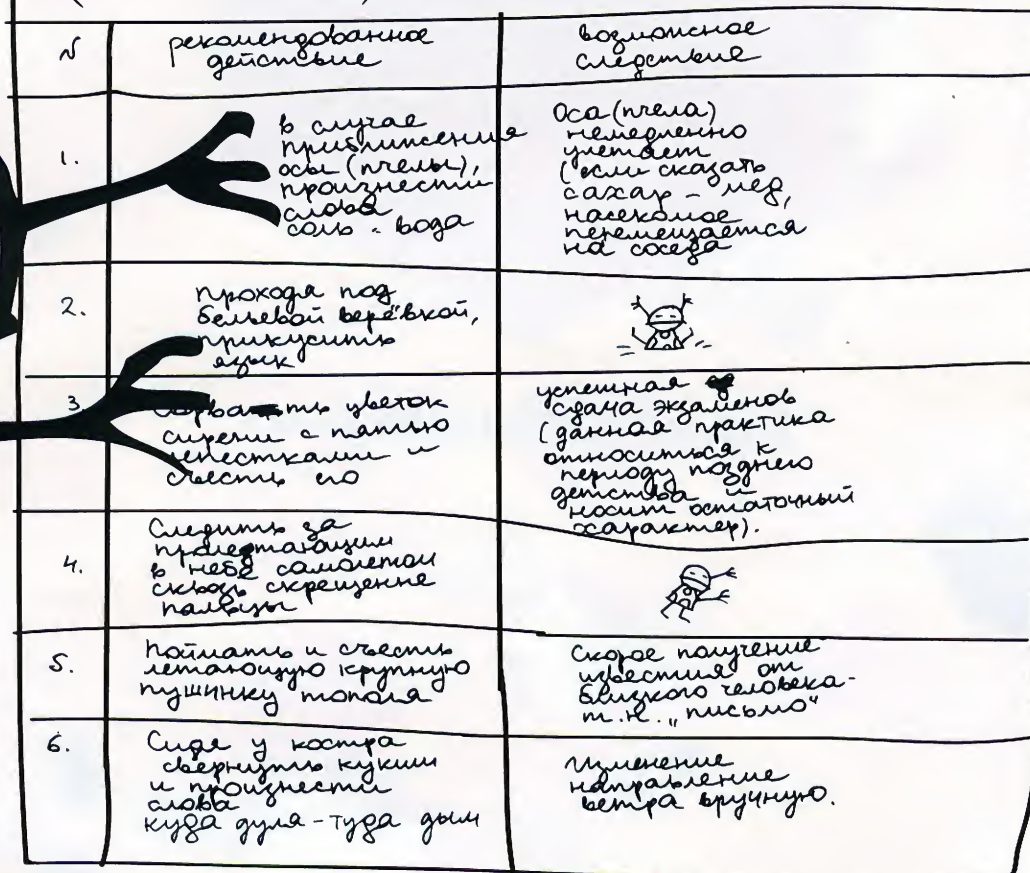 N
рекомендованное
действие
возможное
следствие
1.
в случае
приближения
осы (пчелы),
произнести
слова
соль - вода
Оса (пчела)
немедленно
улетает
(если сказать
сахар - мёд,
насекомое
перемещается
на соседа
2.
проходя под
бельевой верёвкой,
прикусить
язык
3.
цветок
сирени с пятью
лепестками и
съесть его
успешная
сдача экзаменов
(данная практика
относиться к
периоду позднего
детства и
носит остаточный
характер).
4.
Следить за
пролетающим
в небе самолетом
сквозь скрещенне
пальцы
5.
поймать и съесть
летающую крупную
пушинку тополя
Скорое получение
известия от
близкого человека-
т.н. „письмо“
6.
Сидя у костра
свернуть кукиш
и произнести
слова
куда дуля - туда дым
Изменение
направление
ветра вручную.